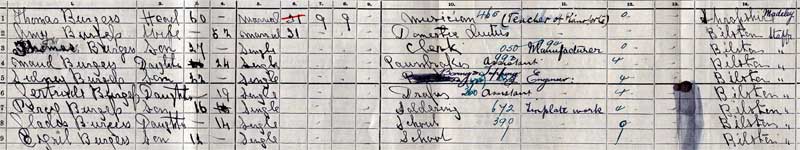 1. 2. 3. 4. 5. 6. 7. 8. 9. 10. 11. 12. 13. 14.
1 Thomas Burgess Head 60 – Married 31 9 9 Musician 460 (Teacher of Pianoforte) 0 Shropshire Madeley
2 Amy Burgess Wife – 52 Married 31 Domestic Duties Bilston Staffs
3 Thomas Burgess Son 27 – Single Clerk 050 Manufacturer 0 Bilston "
4 Maud Burgess Daughter – 24 Single Pawnbrokers Assistant 4 Bilston "
5 Sidney Burgess Son 22 Single Engineer 4 Bilston "
6 Gertrude Burgess Daughter – 19 Single Draper Assistant 4 Bilston "
7 Percy Burgess Son 16 Single Soldering 672 Tinplate work 4 Bilston "
8 Gladys Burgess Daughter – 14 Single School 390 0 Bilston "
9 Cyril Burgess Son 11 – Single School 1 Bilston "